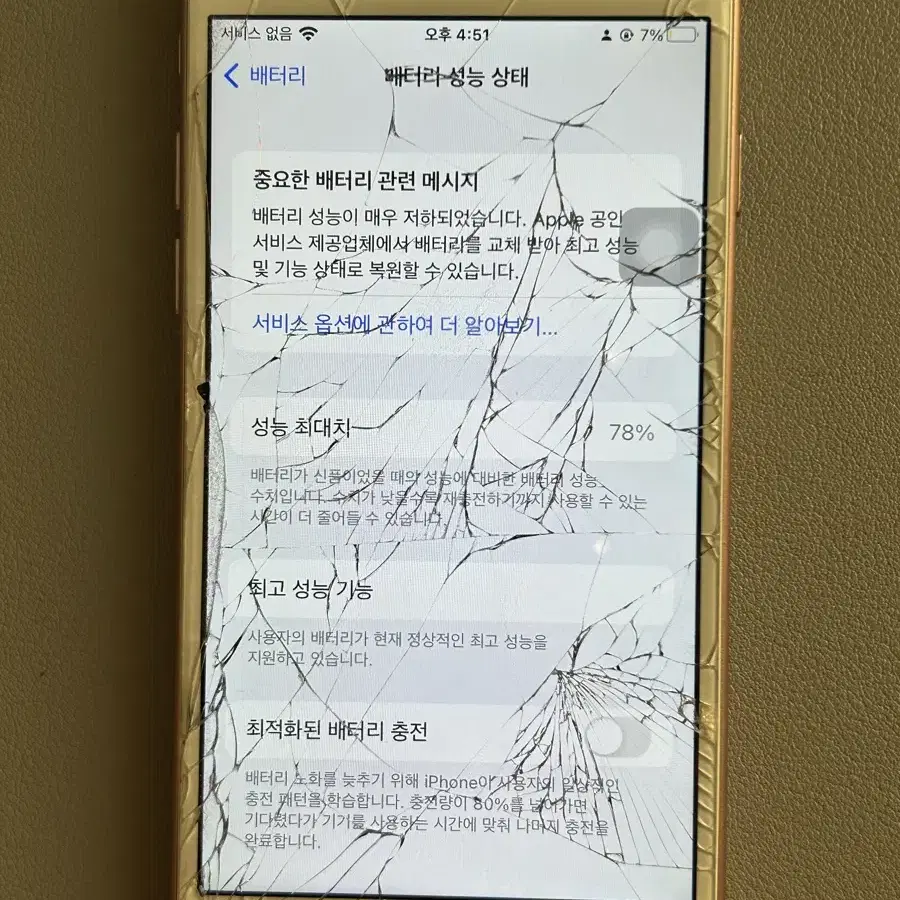 서비스 없음 오후 4:51 7%
배터리 배터리 성능 상태
중요한 배터리 관련 메시지
배터리 성능이 매우 저하되었습니다. Apple 공인
서비스 제공업체에서 배터리를 교체 받아 최고 성능
및 기능 상태로 복원할 수 있습니다.
서비스 옵션에 관하여 더 알아보기...
성능 최대치 78%
배터리가 신품이었을 때의 성능에 대비한 배터리 성능
수치입니다. 수치가 낮을수록 재충전하기까지 사용할 수 있는
시간이 더 줄어들 수 있습니다.
최고 성능 기능
사용자의 배터리가 현재 정상적인 최고 성능을
지원하고 있습니다.
최적화된 배터리 충전
배터리 노화를 늦추기 위해 iPhone이 사용자의 일상적인
충전 패턴을 학습합니다. 충전량이 80%를 넘어가면
기다렸다가 기기를 사용하는 시간에 맞춰 나머지 충전을
완료합니다.